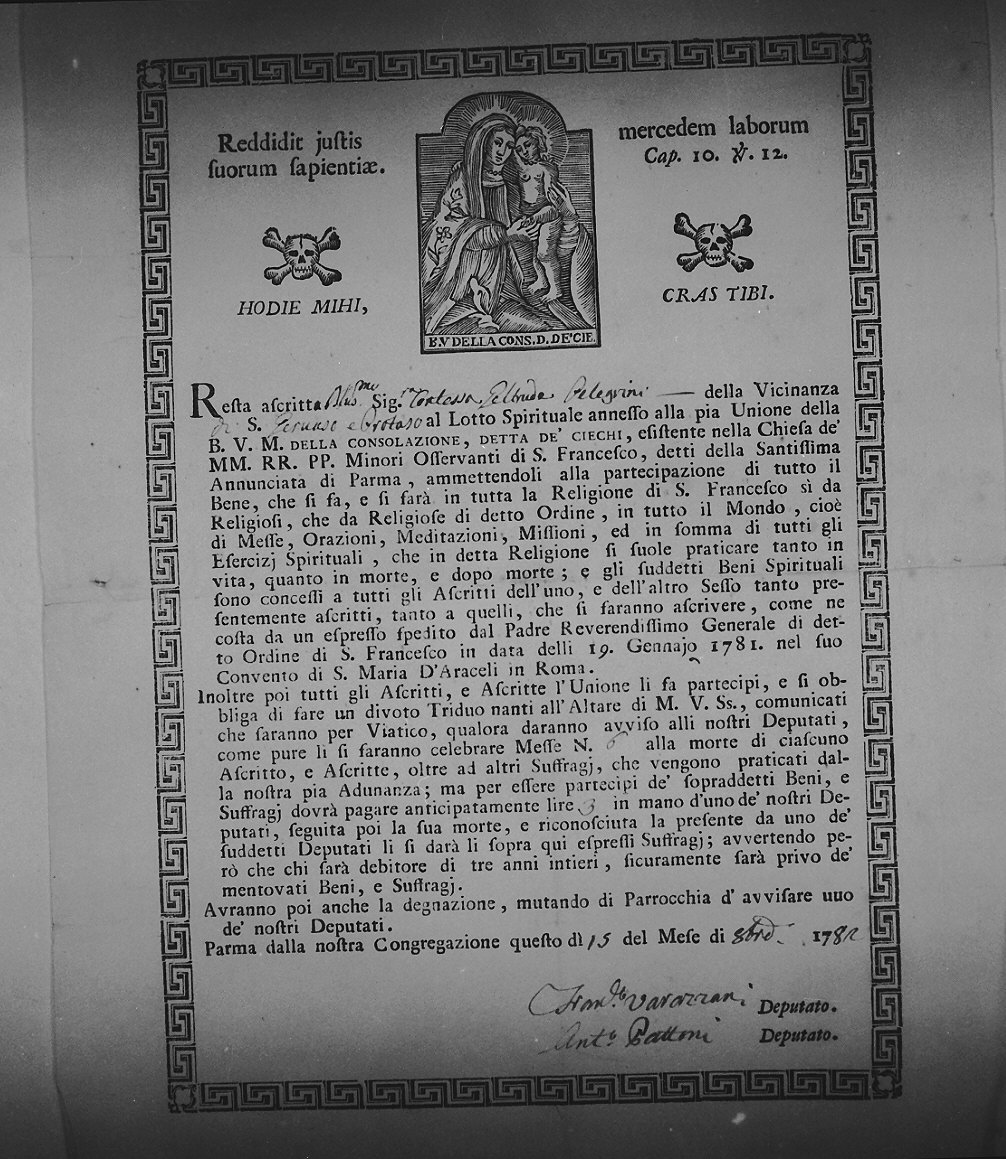 Reddidit juſtis
ſuorum ſapientiæ.
mercedem laborum
Cap. 10. ℣. 12.
HODIE MIHI,
CRAS TIBI.
B.V DELLA CONS. D. DE' CIE.
Reſta aſcritta Illus.ma Sig.ra Contessa Pelegrini — della Vicinanza
di S. Gervaso e Protaso al Lotto Spirituale anneſſo alla pia Unione della
B. V. M. DELLA CONSOLAZIONE, DETTA DE' CIECHI, eſiſtente nella Chieſa de'
MM. RR. PP. Minori Oſſervanti di S. Franceſco, detti della Santiſſima
Annunciata di Parma, ammettendoli alla partecipazione di tutto il
Bene, che ſi fa, e ſi farà in tutta la Religione di S. Franceſco sì da
Religioſi, che da Religioſe di detto Ordine, in tutto il Mondo, cioè
di Meſſe, Orazioni, Meditazioni, Miſſioni, ed in ſomma di tutti gli
Eſercizj Spirituali, che in detta Religione ſi ſuole praticare tanto in
vita, quanto in morte, e dopo morte; e gli ſuddetti Beni Spirituali
ſono conceſſi a tutti gli Aſcritti dell'uno, e dell'altro Seſſo tanto pre-
ſentemente aſcritti, tanto a quelli, che ſi faranno aſcrivere, come ne
coſta da un eſpreſſo ſpedito dal Padre Reverendiſſimo Generale di det-
to Ordine di S. Franceſco in data delli 19. Gennajo 1781. nel ſuo
Convento di S. Maria D'Araceli in Roma.
Inoltre poi tutti gli Aſcritti, e Aſcritte l'Unione li fa partecipi, e ſi ob-
bliga di fare un divoto Triduo nanti all'Altare di M. V. Ss., comunicati
che ſaranno per Viatico, qualora daranno avviſo alli noſtri Deputati,
come pure li ſi faranno celebrare Meſſe N. 6 alla morte di ciaſcuno
Aſcritto, e Aſcritte, oltre ad altri Suffragj, che vengono praticati dal-
la noſtra pia Adunanza; ma per eſſere partecipi de' ſopraddetti Beni, e
Suffragj dovrà pagare anticipatamente lire 3 in mano d'uno de' noſtri De-
putati, ſeguita poi la ſua morte, e riconoſciuta la preſente da uno de'
ſuddetti Deputati li ſi darà li ſopra qui eſpreſſi Suffragj; avvertendo pe-
rò che chi ſarà debitore di tre anni intieri, ſicuramente ſarà privo de'
mentovati Beni, e Suffragj.
Avranno poi anche la degnazione, mutando di Parrocchia d' avviſare uuo
de' noſtri Deputati.
Parma dalla noſtra Congregazione queſto dì 15 del Meſe di 8bre 1782
Fran.co Varazzani Deputato.
Ant.o Pattoni Deputato.